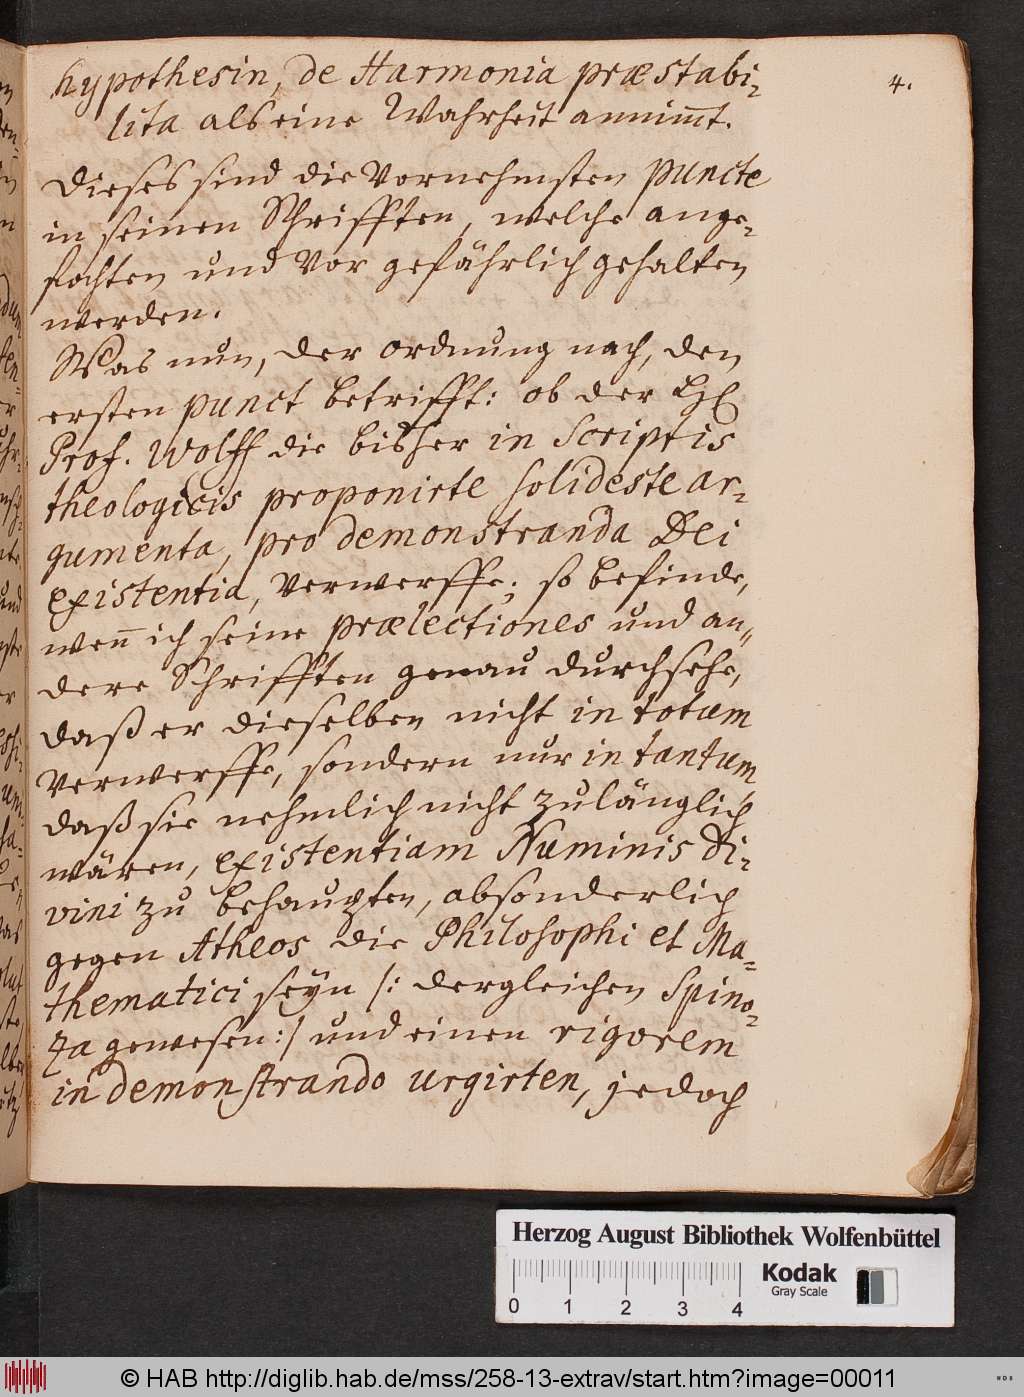 4.
hypothesin, de Harmonia præstabi-
lita als eine Wahrheit annim̅t.
Dieses sind die Vornehmsten puncte
in seinen Schrifften, welche ange-
fochten und Vor gefährlich gehalten
werden.
Was nun, der ordnung nach, den
ersten punct betrifft: ob der
Prof. Wolff die bißher in Scriptis
theologicis proponirte solideste ar-
gumenta, pro demonstranda Dei
existentia, Verwerffe; so befinde,
wen̅ ich seine prælectiones und an-
dere Schrifften genau durchsehe,
daß er dieselben nicht in totum
Verwerffe, sondern nur in tantum,
daß sie nehmlich nicht zulänglich
wären, existentiam Numinis Di-
vini zu behaupten, absonderlich
gegen Atheos die Philosophi et Ma-
thematici seyn /: dergleichen Spino-
za gewesen :/ und einen rigorem
in demonstrando urgirten, jedoch
Herzog August Bibliothek Wolfenbüttel
Kodak
Gray Scale
0 1 2 3 4
© HAB http://diglib.hab.de/mss/258-13-extrav/start.htm?image=00011